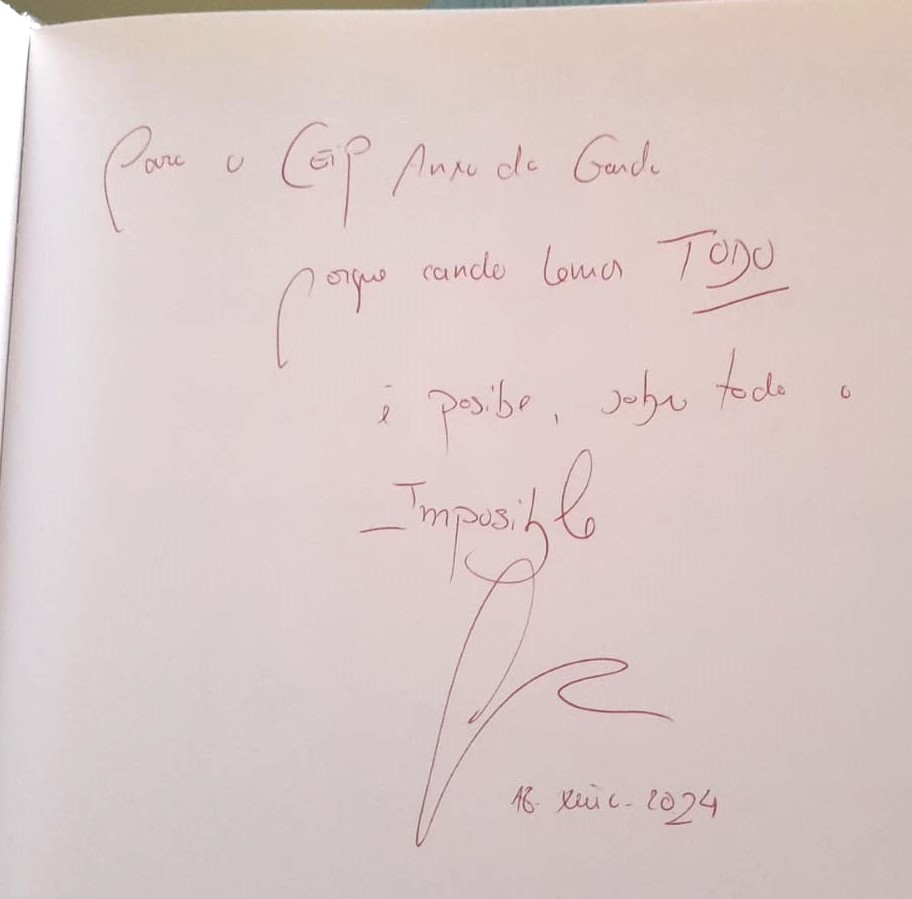 Para o CEiP Anxo da Garda
porque cando lemos TODO
é posibe, sobre todo o
Imposible
18. xuño. 2024